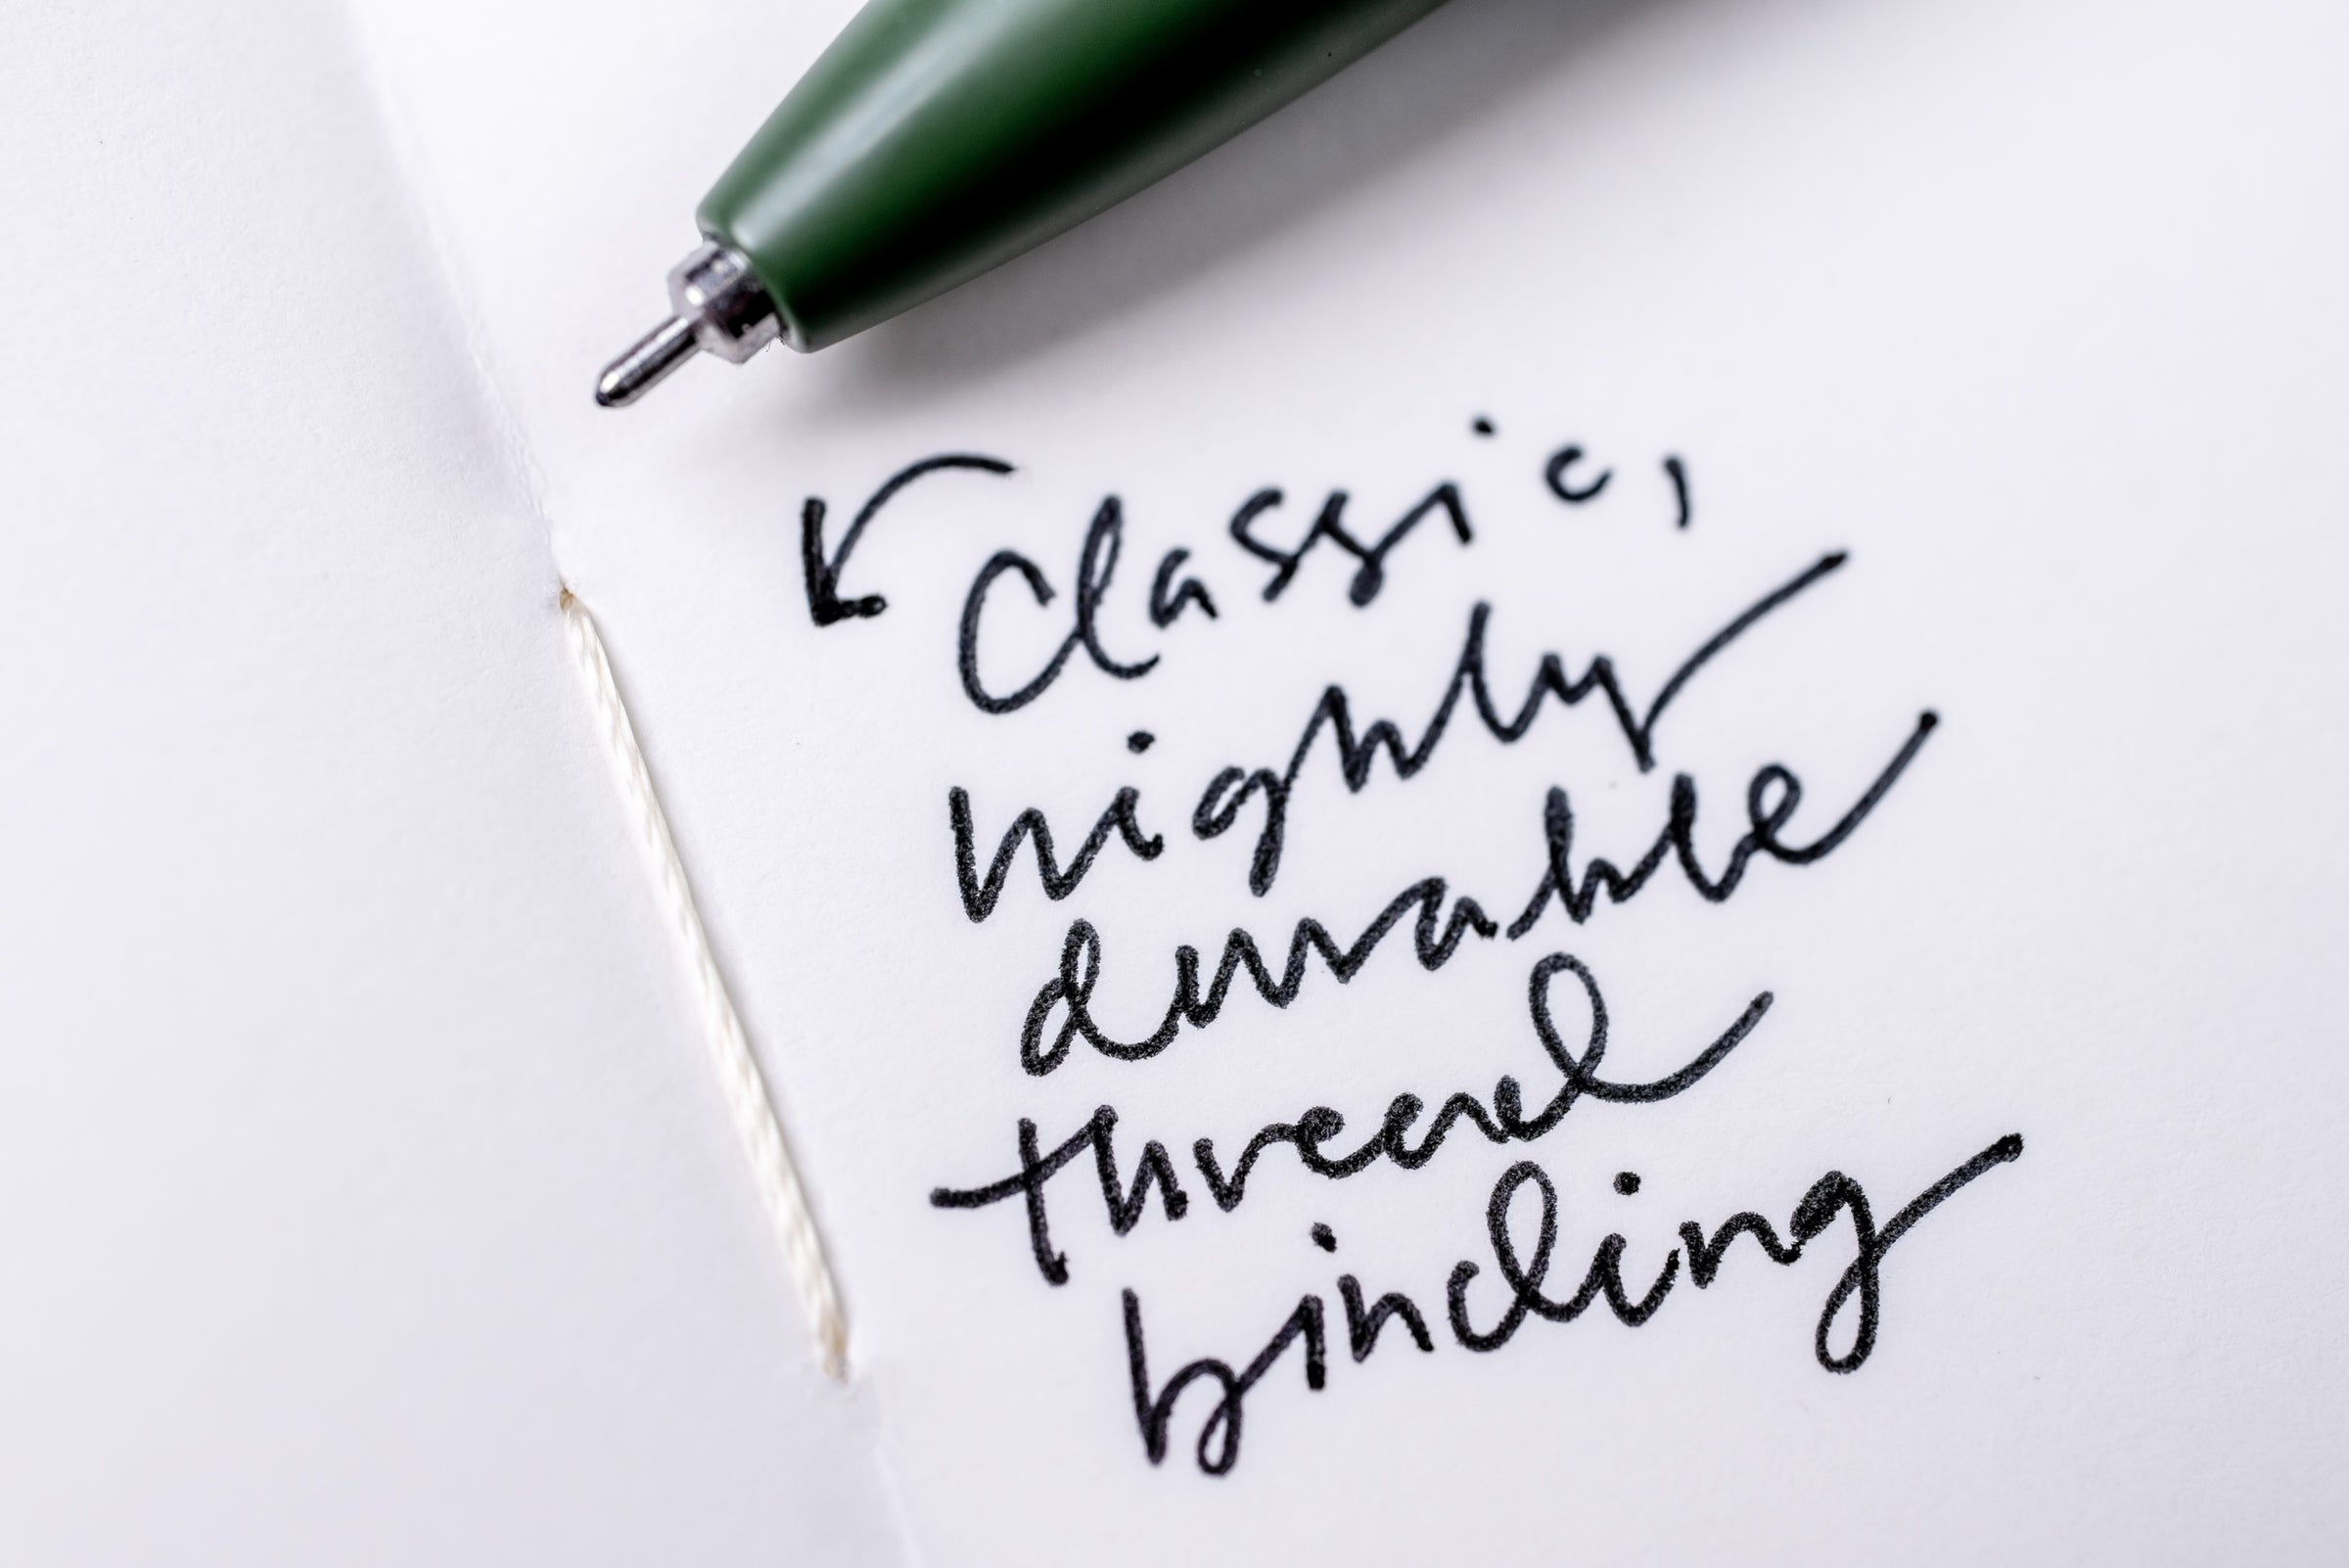 Classic,
highly
durable
thread
binding